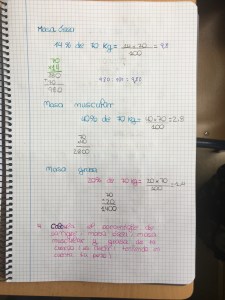 Masa ósea
14% de 70 Kg = 14 x 70 / 100 = 9,8
70
x 14
280
70
980
980 : 100 = 9,80
Masa muscular
40% de 70 Kg = 40 x 70 / 100 = 2.8
70
40
2800
Masa grasa
20% de 70 Kg = 20 x 70 / 100
70
20
1400
4.
masa ósea, masa
muscular y grasa de tu
en
cuenta tu peso)